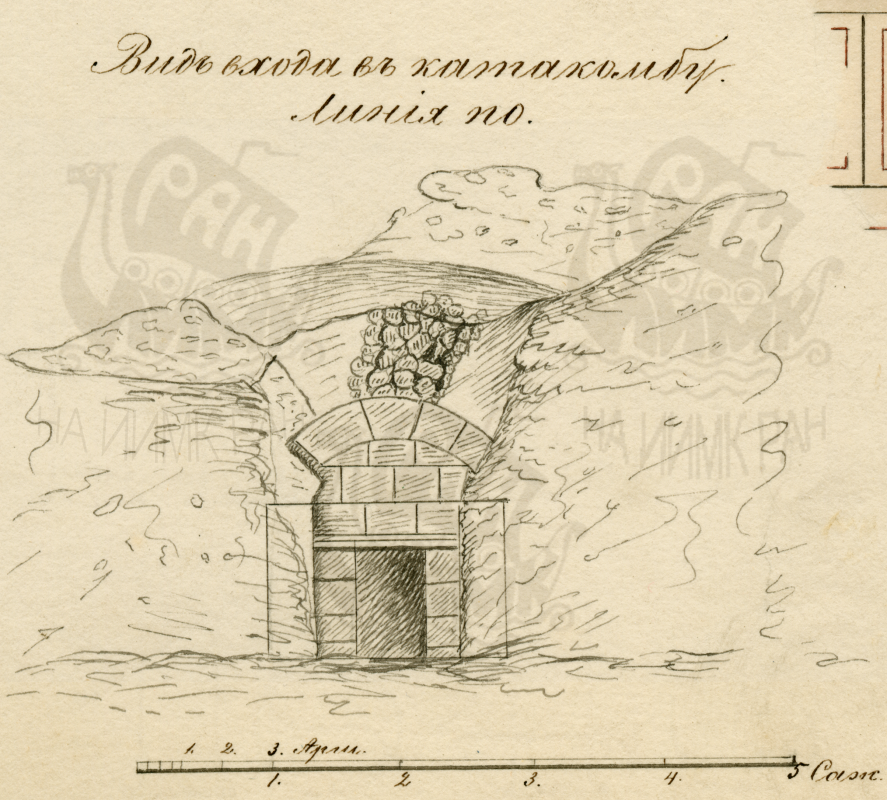 Видъ входа въ катакомбу.
Линія по.
РАН
РАН
НА ИИМК РАН
НА ИИМК РАН
1. 2. 3. Арш.
1. 2 3. 4. 5 Саж.